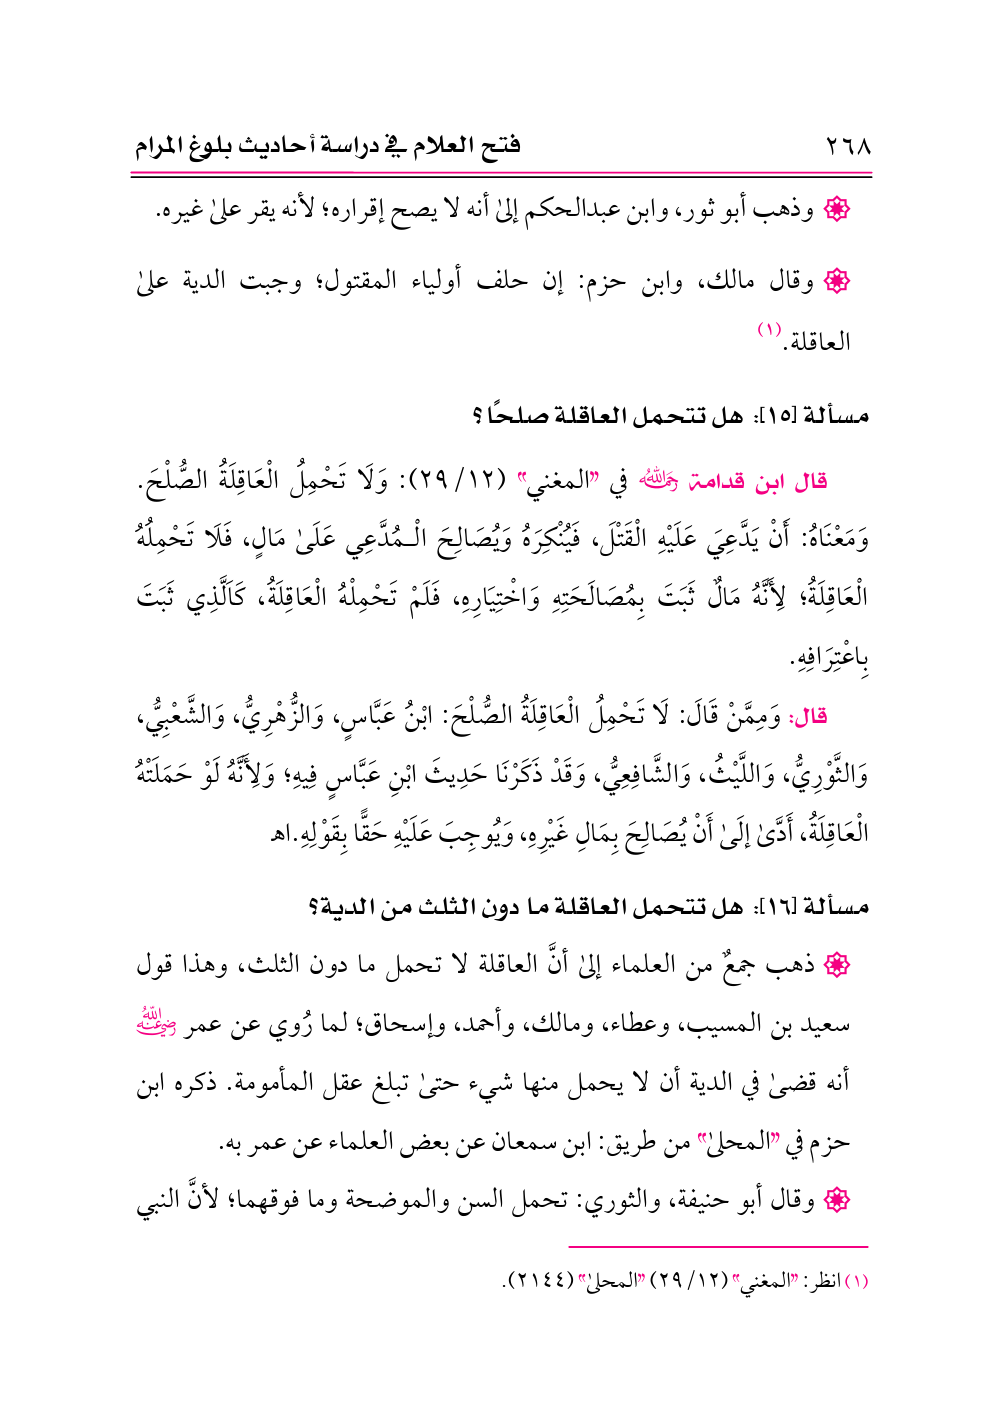 ٢٦٨ فتح العلام في دراسة أحاديث بلوغ المرام
وذهب أبو ثور، وابن عبدالحكم إلىٰ أنه لا يصح إقراره؛ لأنه يقر علىٰ غيره.
وقال مالك، وابن حزم: إن حلف أولياء المقتول؛ وجبت الدية علىٰ
العاقلة.(١)
مسألة [١٥]: هل تتحمل العاقلة صلحًا؟
قال ابن قدامة رحمه الله في "المغني" (١٢/ ٢٩): وَلَا تَحْمِلُ الْعَاقِلَةُ الصُّلْحَ.
وَمَعْنَاهُ: أَنْ يَدَّعِيَ عَلَيْهِ الْقَتْلَ، فَيُنْكِرَهُ وَيُصَالِحَ الْـمُدَّعِي عَلَىٰ مَالٍ، فَلَا تَحْمِلُهُ
الْعَاقِلَةُ؛ لِأَنَّهُ مَالٌ ثَبَتَ بِمُصَالَحَتِهِ وَاخْتِيَارِهِ، فَلَمْ تَحْمِلْهُ الْعَاقِلَةُ، كَاَلَّذِي ثَبَتَ
بِاعْتِرَافِهِ.
قال: وَمِمَّنْ قَالَ: لَا تَحْمِلُ الْعَاقِلَةُ الصُّلْحَ: ابْنُ عَبَّاسٍ، وَالزُّهْرِيُّ، وَالشَّعْبِيُّ،
وَالثَّوْرِيُّ، وَاللَّيْثُ، وَالشَّافِعِيُّ، وَقَدْ ذَكَرْنَا حَدِيثَ ابْنِ عَبَّاسٍ فِيهِ؛ وَلِأَنَّهُ لَوْ حَمَلَتْهُ
الْعَاقِلَةُ، أَدَّىٰ إلَىٰ أَنْ يُصَالِحَ بِمَالِ غَيْرِهِ، وَيُوجِبَ عَلَيْهِ حَقًّا بِقَوْلِهِ.اهـ
مسألة [١٦]: هل تتحمل العاقلة ما دون الثلث من الدية؟
ذهب جمعٌ من العلماء إلىٰ أنَّ العاقلة لا تحمل ما دون الثلث، وهذا قول
سعيد بن المسيب، وعطاء، ومالك، وأحمد، وإسحاق؛ لما رُوي عن عمر رضي الله عنه
أنه قضىٰ في الدية أن لا يحمل منها شيء حتىٰ تبلغ عقل المأمومة. ذكره ابن
حزم في "المحلىٰ" من طريق: ابن سمعان عن بعض العلماء عن عمر به.
وقال أبو حنيفة، والثوري: تحمل السن والموضحة وما فوقهما؛ لأنَّ النبي
(١) انظر: "المغني" (١٢/ ٢٩) "المحلىٰ" (٢١٤٤).